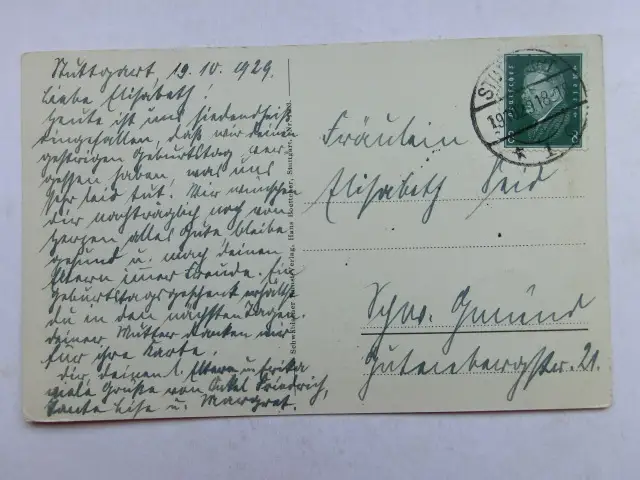 Stuttgart, 19.10.1929.
Liebe Elisabeth!
Heute ist uns siedendheiß
eingefallen, daß wir deinen
gestrigen Geburtstag ver-
gessen haben, was uns
sehr leid tut. Wir wünschen
dir nachträglich noch von
Herzen alles Gute bleibe
gesund u. mach deinen
Eltern immer Freude. Ein
Geburtstagsgeschenk erhältst
du in den nächsten Tagen.
Deiner Mutter danken wir
für ihre Karte.
Dir, deinen l. Eltern u. Erika
viele Grüße von Onkel Friedrich,
Tante Lise u. Margret.
Hans Boettcher, Stuttgart.
Fräulein
Elisabeth Seid
Schw. Gmünd
Gutenbergstr. 21.